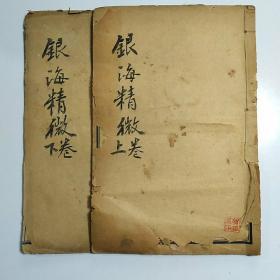 銀海精微上卷
銀海精微下卷